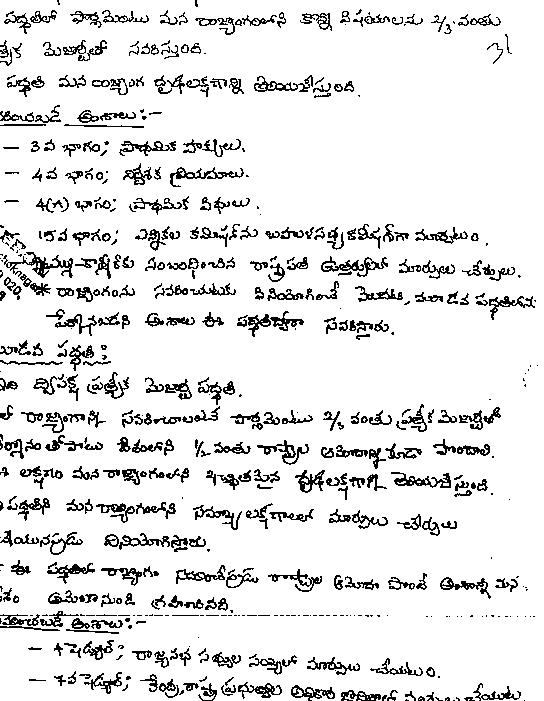 పద్ధతిలో పార్లమెంటు మన రాజ్యాంగంలోని కొన్ని విషయాలను 2/3 వంతు
మెజార్టీతో సవరిస్తుంది.
31
పద్ధతి మన రాజ్యాంగ దృఢ లక్షణాన్ని తెలియజేస్తుంది.
అంశాలు :-
– 3వ భాగం; ప్రాథమిక హక్కులు.
– 4వ భాగం; నిర్దేశక నియమాలు.
– 4(ఎ) భాగం; ప్రాథమిక విధులు.
15వ భాగం; ఎన్నికల కమిషన్‌ను బహుళసభ్య కమీషన్‌గా మార్చటం.
సంబంధించిన రాష్ట్రపతి ఉత్తర్వులలో మార్పులు చేర్పులు.
రాజ్యాంగంను సవరించుటకు వినియోగించే మొదటి, మూడవ పద్ధతిలోను
పేర్కొనబడని అంశాలు ఈ పద్ధతిద్వారా సవరిస్తారు.
పద్ధతి :
ద్విపక్ష ప్రత్యేక మెజార్టీ పద్ధతి.
రాజ్యాంగాన్ని సవరించాలంటే పార్లమెంటు 2/3 వంతు ప్రత్యేక మెజార్టీతో
తోపాటు దేశంలోని 1/2 వంతు రాష్ట్రాల ఆమోదాన్ని కూడా పొందాలి.
లక్షణం మన రాజ్యాంగంలోని దృఢ లక్షణాన్ని తెలియజేస్తుంది.
పద్ధతిని మన రాజ్యాంగంలోని సమాఖ్య లక్షణాలలో మార్పులు చేర్పులు
వినియోగిస్తారు.
ఈ పద్ధతిలో రాజ్యాంగం రాష్ట్రాల ఆమోదం పొందే అంశాన్ని మన
అమెరికా నుండి గ్రహించినది.
అంశాలు :-
– 4 షెడ్యూల్; రాజ్యసభ సభ్యుల సంఖ్యలో మార్పులు చేయటం.
– 7వ షెడ్యూల్; కేంద్ర, రాష్ట్ర ప్రభుత్వాల అధికార మార్పులు చేయుట.